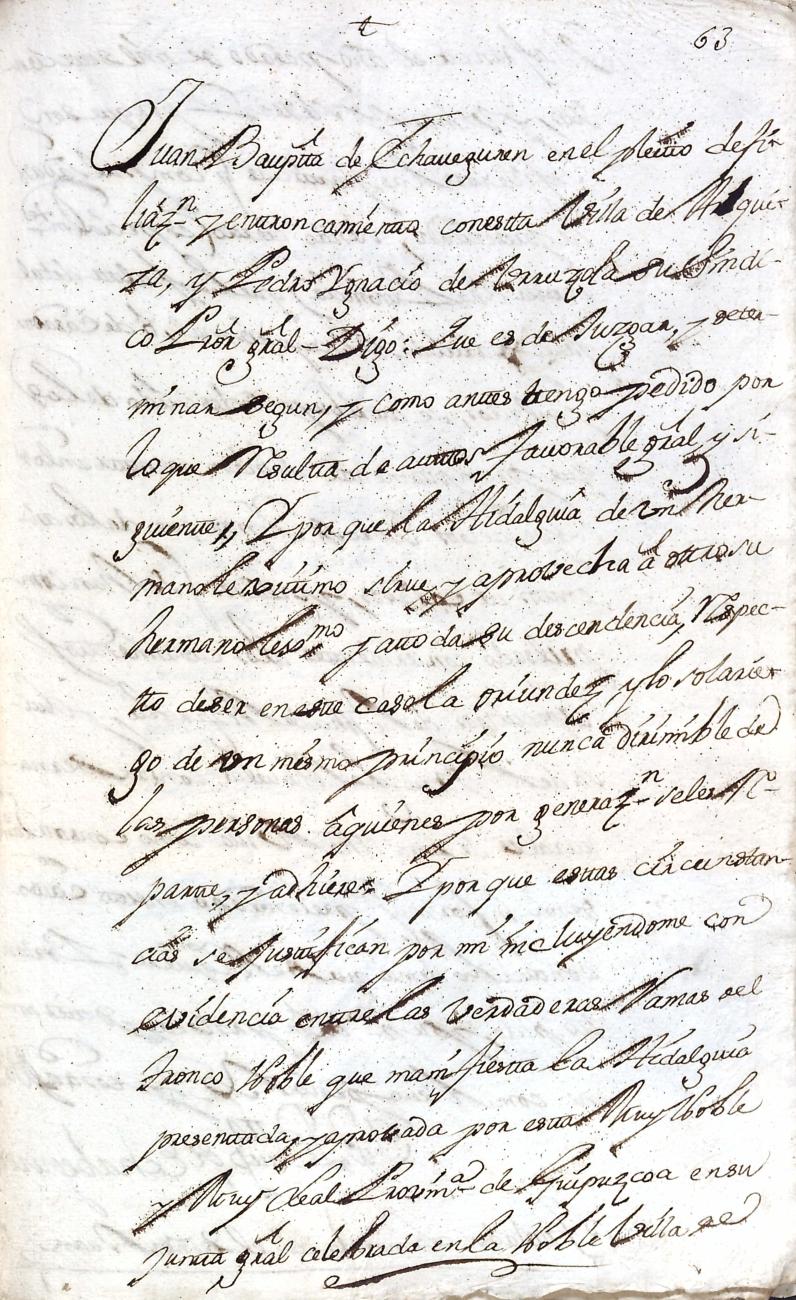 63
Juan Bauptta de Echaueguren en el pleitto de fi-
liazn y entroncamientto con estta Villa de Alqui-
za, y Pedro Ygnacio de Yrruzola su Sindi-
co Pror gral - Digo: Que es de Juzgar, y deter-
minar segun, y como antes tengo pedido por
lo que Resulta de auttos favorable gral y si-
guiente, Y por que la Hidalguia de Vn Her-
mano lexitimo sirue, y aprovecha al ottro su
hermano lexmo y attoda su descendencia, Respec-
tto de ser en este caso la oriundez y lo solarie-
go de Vn mismo principio nunca dirimible de
las personas aquienes por generazn seles Re-
parte, y adhiere: Y por que esttas circunstan-
cias se Justtifican por mi incluyendome con
evidencia entre las Verdaderas Ramas del
tronco Noble que manifiestta la Hidalguia
presenttada, y aprovada por estta Muy Noble
y Muy Leal Provina de Guipuzcoa en su
Juntta gral celebrada en la Noble Villa de